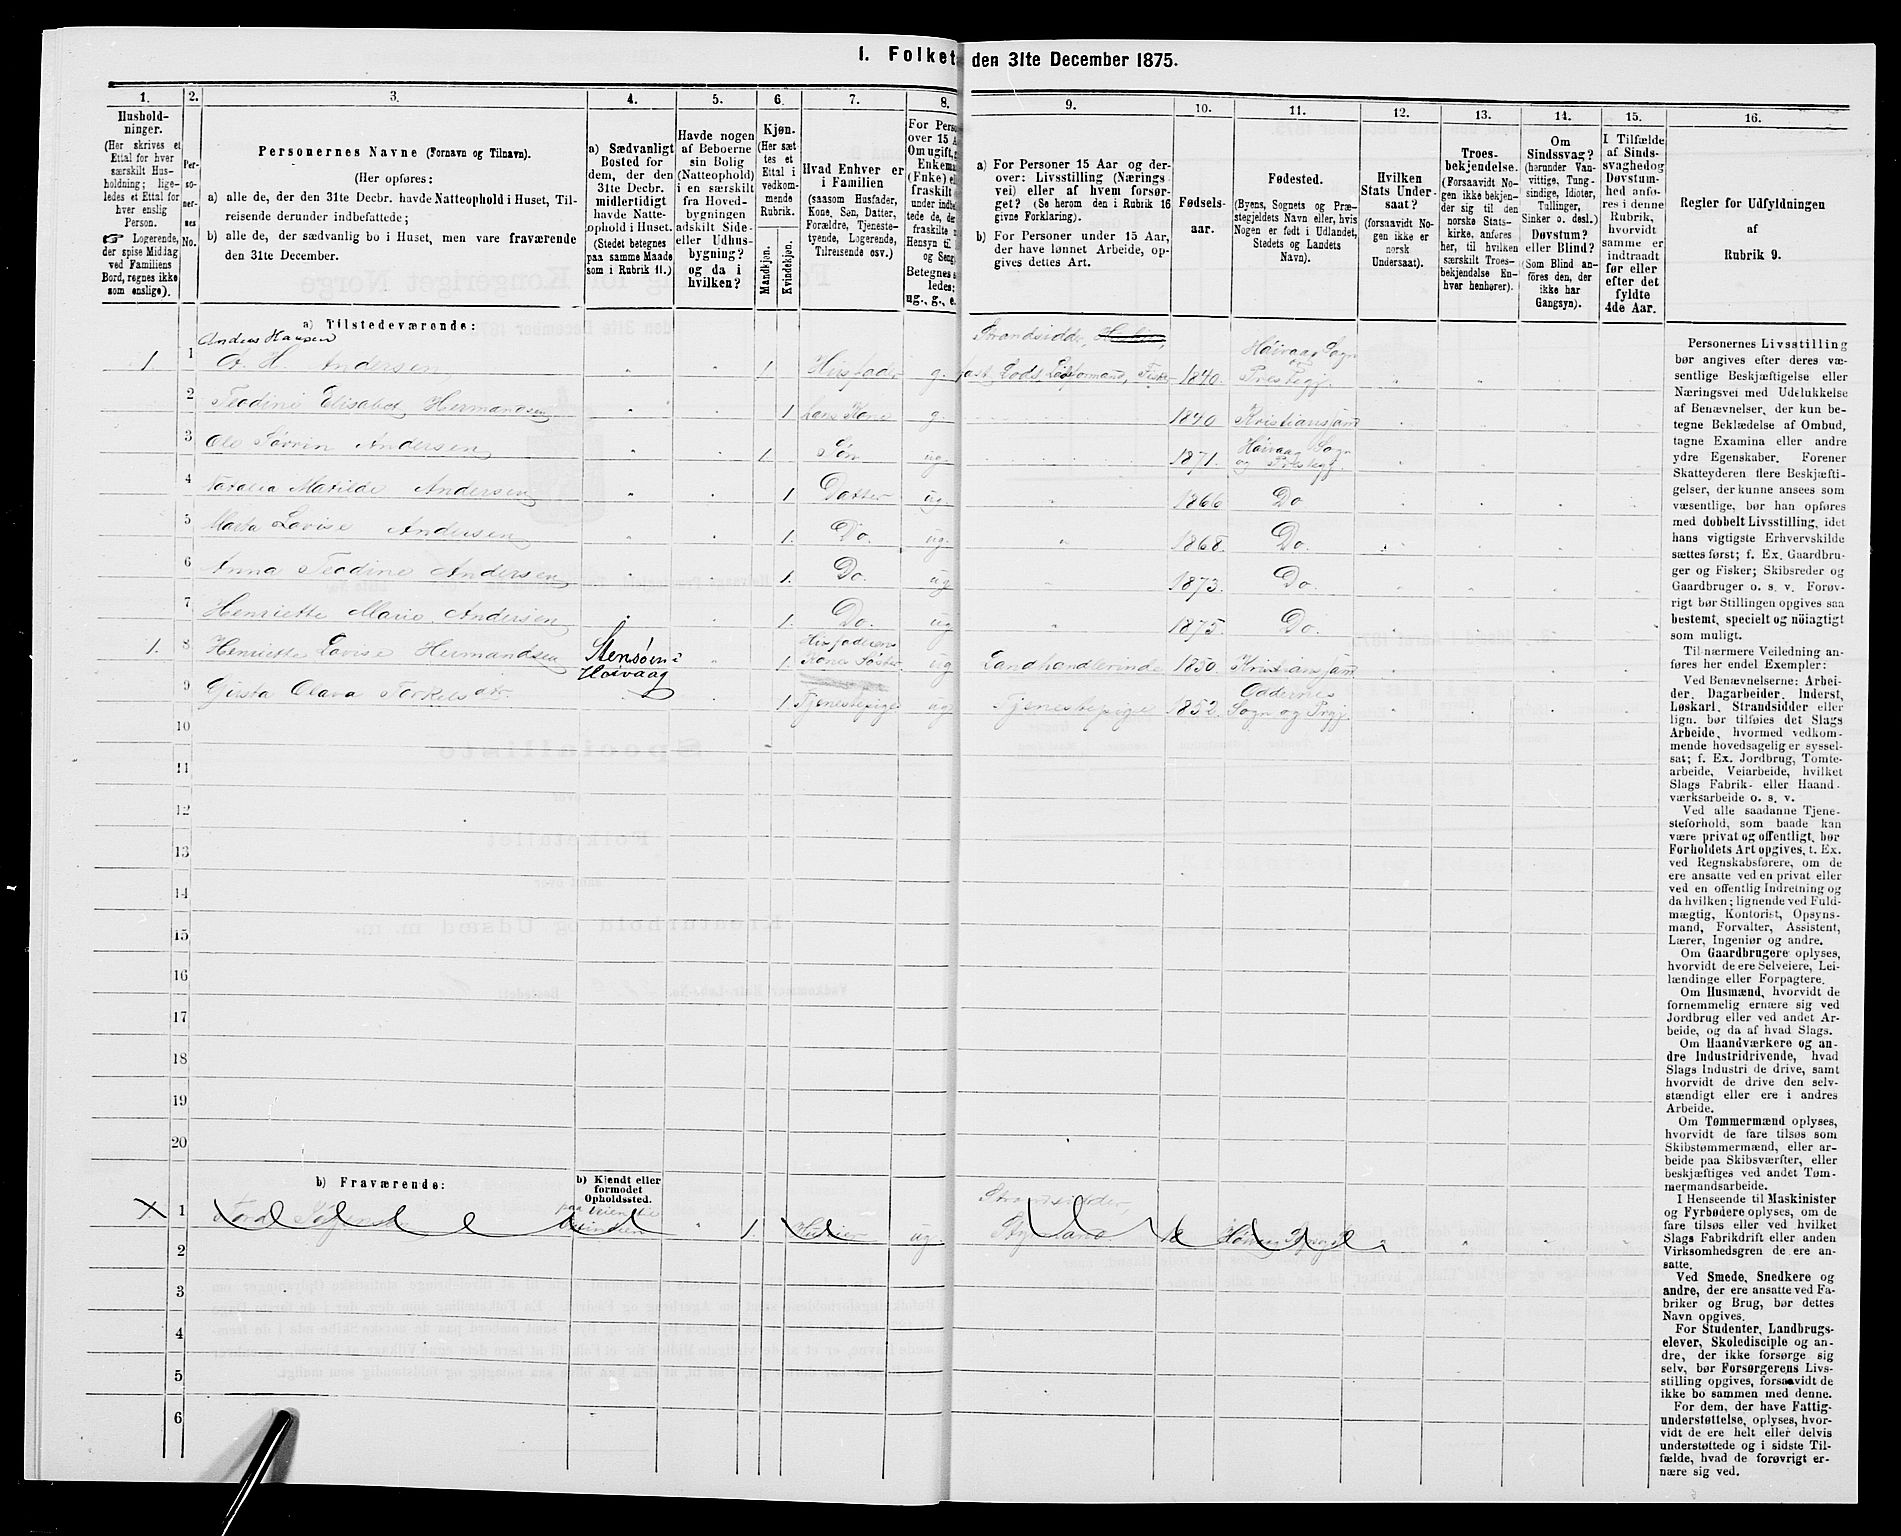 I. Folket
den 31te December 1875.
1.
2.
3.
4.
5.
6.
7.
8.
9.
10.
11.
12.
13.
14.
15.
16.
Hushold-
ninger.
(Her skrives et
Ettal for hver
særskilt Hus-
holdning; lige-
ledes et Ettal for
hver enslig
Person.
☞ Logerende,
der spise Middag
ved Familiens
Bord, regnes ikke
som enslige).
Per-
so-
ner-
nes
No.
Personernes Navne (Fornavn og Tilnavn).
(Her opføres:
a) alle de, der den 31te Decbr. havde Natteophold i Huset, Til-
reisende derunder indbefattede;
b) alle de, der sædvanlig bo i Huset, men vare fraværende
den 31te December.
a) Sædvanligt
Bosted for
dem, der den
31te Decbr.
midlertidigt
havde Natte-
ophold i Huset.
(Stedet betegnes
paa samme Maade
som i Rubrik 11.)
Havde nogen
af Beboerne
sin Bolig
(Natteophold)
i en særskilt
fra Hoved-
bygningen
adskilt Side-
eller Udhus-
bygning?
og da i
hvilken?
Kjøn.
(Her sæt
tes et
Ettal i
vedkom-
mende
Rubrik.
Mandkjøn.
Kvindekjøn.
Hvad Enhver er
i Familien
(saasom Husfader,
Kone, Søn, Datter,
Forældre, Tjeneste-
tyende, Logerende,
Tilreisende osv.)
For Perso
over 15 A
Om ugift,
Enkema
(Enke) e
fraskilt
under indb
tede de,
fraskilte
Hensyn til
og Seng
Betegnes s
ledes:
ug., g., e.
a) For Personer 15 Aar og der-
over: Livsstilling (Nærings-
vei) eller af hvem forsør-
get? (Se herom den i Rubrik 16
givne Forklaring).
b) For Personer under 15 Aar,
der have lønnet Arbeide, op-
gives dettes Art.
Fødsels-
aar.
Fødested.
(Byens, Sognets og Præ-
stegjeldets Navn eller, hvis
Nogen er født i Udlandet,
Stedets og Landets
Navn).
Hvilken
Stats Under-
saat?
(forsaavidt No-
gen ikke er
norsk
Undersaat).
Troes-
bekjendelse.
(Forsaavidt No-
gen ikke bekjen-
der sig til den
norske Stats-
kirke, anføres
her, til hvilken
særskilt Troes-
bekjendelse En-
hver henhører).
Om
Sindssvag?
(herunder Van-
vittige, Tung-
sindige, Idioter,
Tullinger,
Sinker o. desl.)
Døvstum?
eller Blind?
(Som Blind an-
föres den, der
ikke har
Gangsyn).
I Tilfælde
af Sinds-
svaghed og
Døvstum-
hed anfø-
res i denne
Rubrik,
hvorvidt
samme er
indtraadt
før eller
efter det
fyldte
4de Aar.
Regler for Udfyldningen
af
Rubrik 9.
a) Tilstedeværende:
Anders Hansen
1 1 A. H. Andersen 1. Husfader g. Strandsidder, fast Lods Lodsformand, Fisker 1840. Høivaag Sogn og Prestegj.
2 Teodine Elisabet Hermandsen 1 Hans Kone g. 1840 Kristianssand
3 Ole Sørrin Andersen 1 Søn ug. 1871. Høivaag Sogn og Prestegj.
4 Natalia Matilde Andersen 1 Datter ug. 1866 Do
5 Marta Lovise Andersen 1. Do. ug. 1868. Do.
6 Anna Teodine Andersen 1. Do. ug 1873. Do.
7 Henriette Marie Andersen 1. Do. ug 1875. Do.
1. 8 Henriette Lovise Hermandsen Stensøen i Høivaag 1 Husfaderens Kones Søster ug Landhandlerinde 1850. Kristianssand
9 Girsta Olava Torkelsdtr. 1 Tjenestepige ug Tjenestepige 1852. Oddernes Sogn og Prgj.
10
11
12
13
14
15
16
17
18
19
20
b) Fraværende:
b) Kjendt eller
formodet
Opholdssted.
1 ug. Strandsidder,
2
3
4
5
6
Personernes Livsstilling
bør angives efter deres væ-
sentlige Beskjæftigelse eller
Næringsvei med Udelukkelse
af Benævnelser, der kun be-
tegne Beklædelse af Ombud,
tagne Examina eller andre
ydre Egenskaber. Forener
Skatteyderen flere Beskjæfti-
gelser, der kunne ansees som
væsentlige, bør han opføres
med dobbelt Livsstilling, idet
hans vigtigste Erhvervskilde
sættes først; f. Ex. Gaardbru-
ger og Fisker; Skibsreder og
Gaardbruger o. s. v. Forøv-
rigt bør Stillingen opgives saa
bestemt, specielt og nöiagtigt
som muligt.
Til nærmere Veiledning an-
føres her endel Exempler:
Ved Benævnelserne: Arbei-
der, Dagarbeider, Inderst,
Løskarl, Strandsidder eller
lign. bør tilføies det Slags
Arbeide, hvormed vedkom-
mende hovedsagelig er syssel-
sat; f. Ex. Jordbrug, Tomte-
arbeide, Veiarbeide, hvilket
Slags Fabrik- eller Haand-
værksarbeide o. s. v.
Ved alle saadanne Tjene-
steforhold, som baade kan
være privat og offentligt, bør
Forholdets Art opgives, t. Ex.
ved Regnskabsførere, om de
ere ansatte ved en privat eller
ved en offentlig Indretning og
da hvilken; lignende ved Fuld-
mægtig, Kontorist, Opsyns-
mand, Forvalter, Assistent,
Lærer, Ingeniør og andre.
Om Gaardbrugere oplyses,
hvorvidt de ere Selveiere, Lei-
lændinge eller Forpagtere.
Om Husmænd, hvorvidt de
fornemmelig ernære sig ved
Jordbrug eller ved andet Ar-
beide, og da af hvad Slags.
Om Haandværkere og an-
dre Industridrivende, hvad
Slags Industri de drive, samt
hvorvidt de drive den selv-
stændigt eller ere i andres
Arbeide.
Om Tømmermænd oplyses,
hvorvidt de fare tilsøs som
Skibstømmermænd, eller ar-
beide paa Skibsværfter, eller
beskjæftiges ved andet Tøm-
mermandsarbeide.
I Henseende til Maskinister
og Fyrbødere oplyses, om de
fare tilsøs eller ved hvilket
Slags Fabrikdrift eller anden
Virksomhedsgren de ere an-
satte.
Ved Smede, Snedkere og
andre, der ere ansatte ved Fa-
briker og Brug, bør dettes
Navn opgives.
For Studenter, Landbrugs-
elever, Skoledisciple og an-
dre, der ikke forsørge sig
selv, bør Forsørgerens Livs-
stilling opgives, forsaavidt de
ikke bo sammen med denne.
For dem, der have Fattig-
understøttelse, oplyses, hvor-
vidt de ere helt eller delvis
understøttede og i sidste Til-
fælde, hvad de forøvrigt er-
nære sig ved.